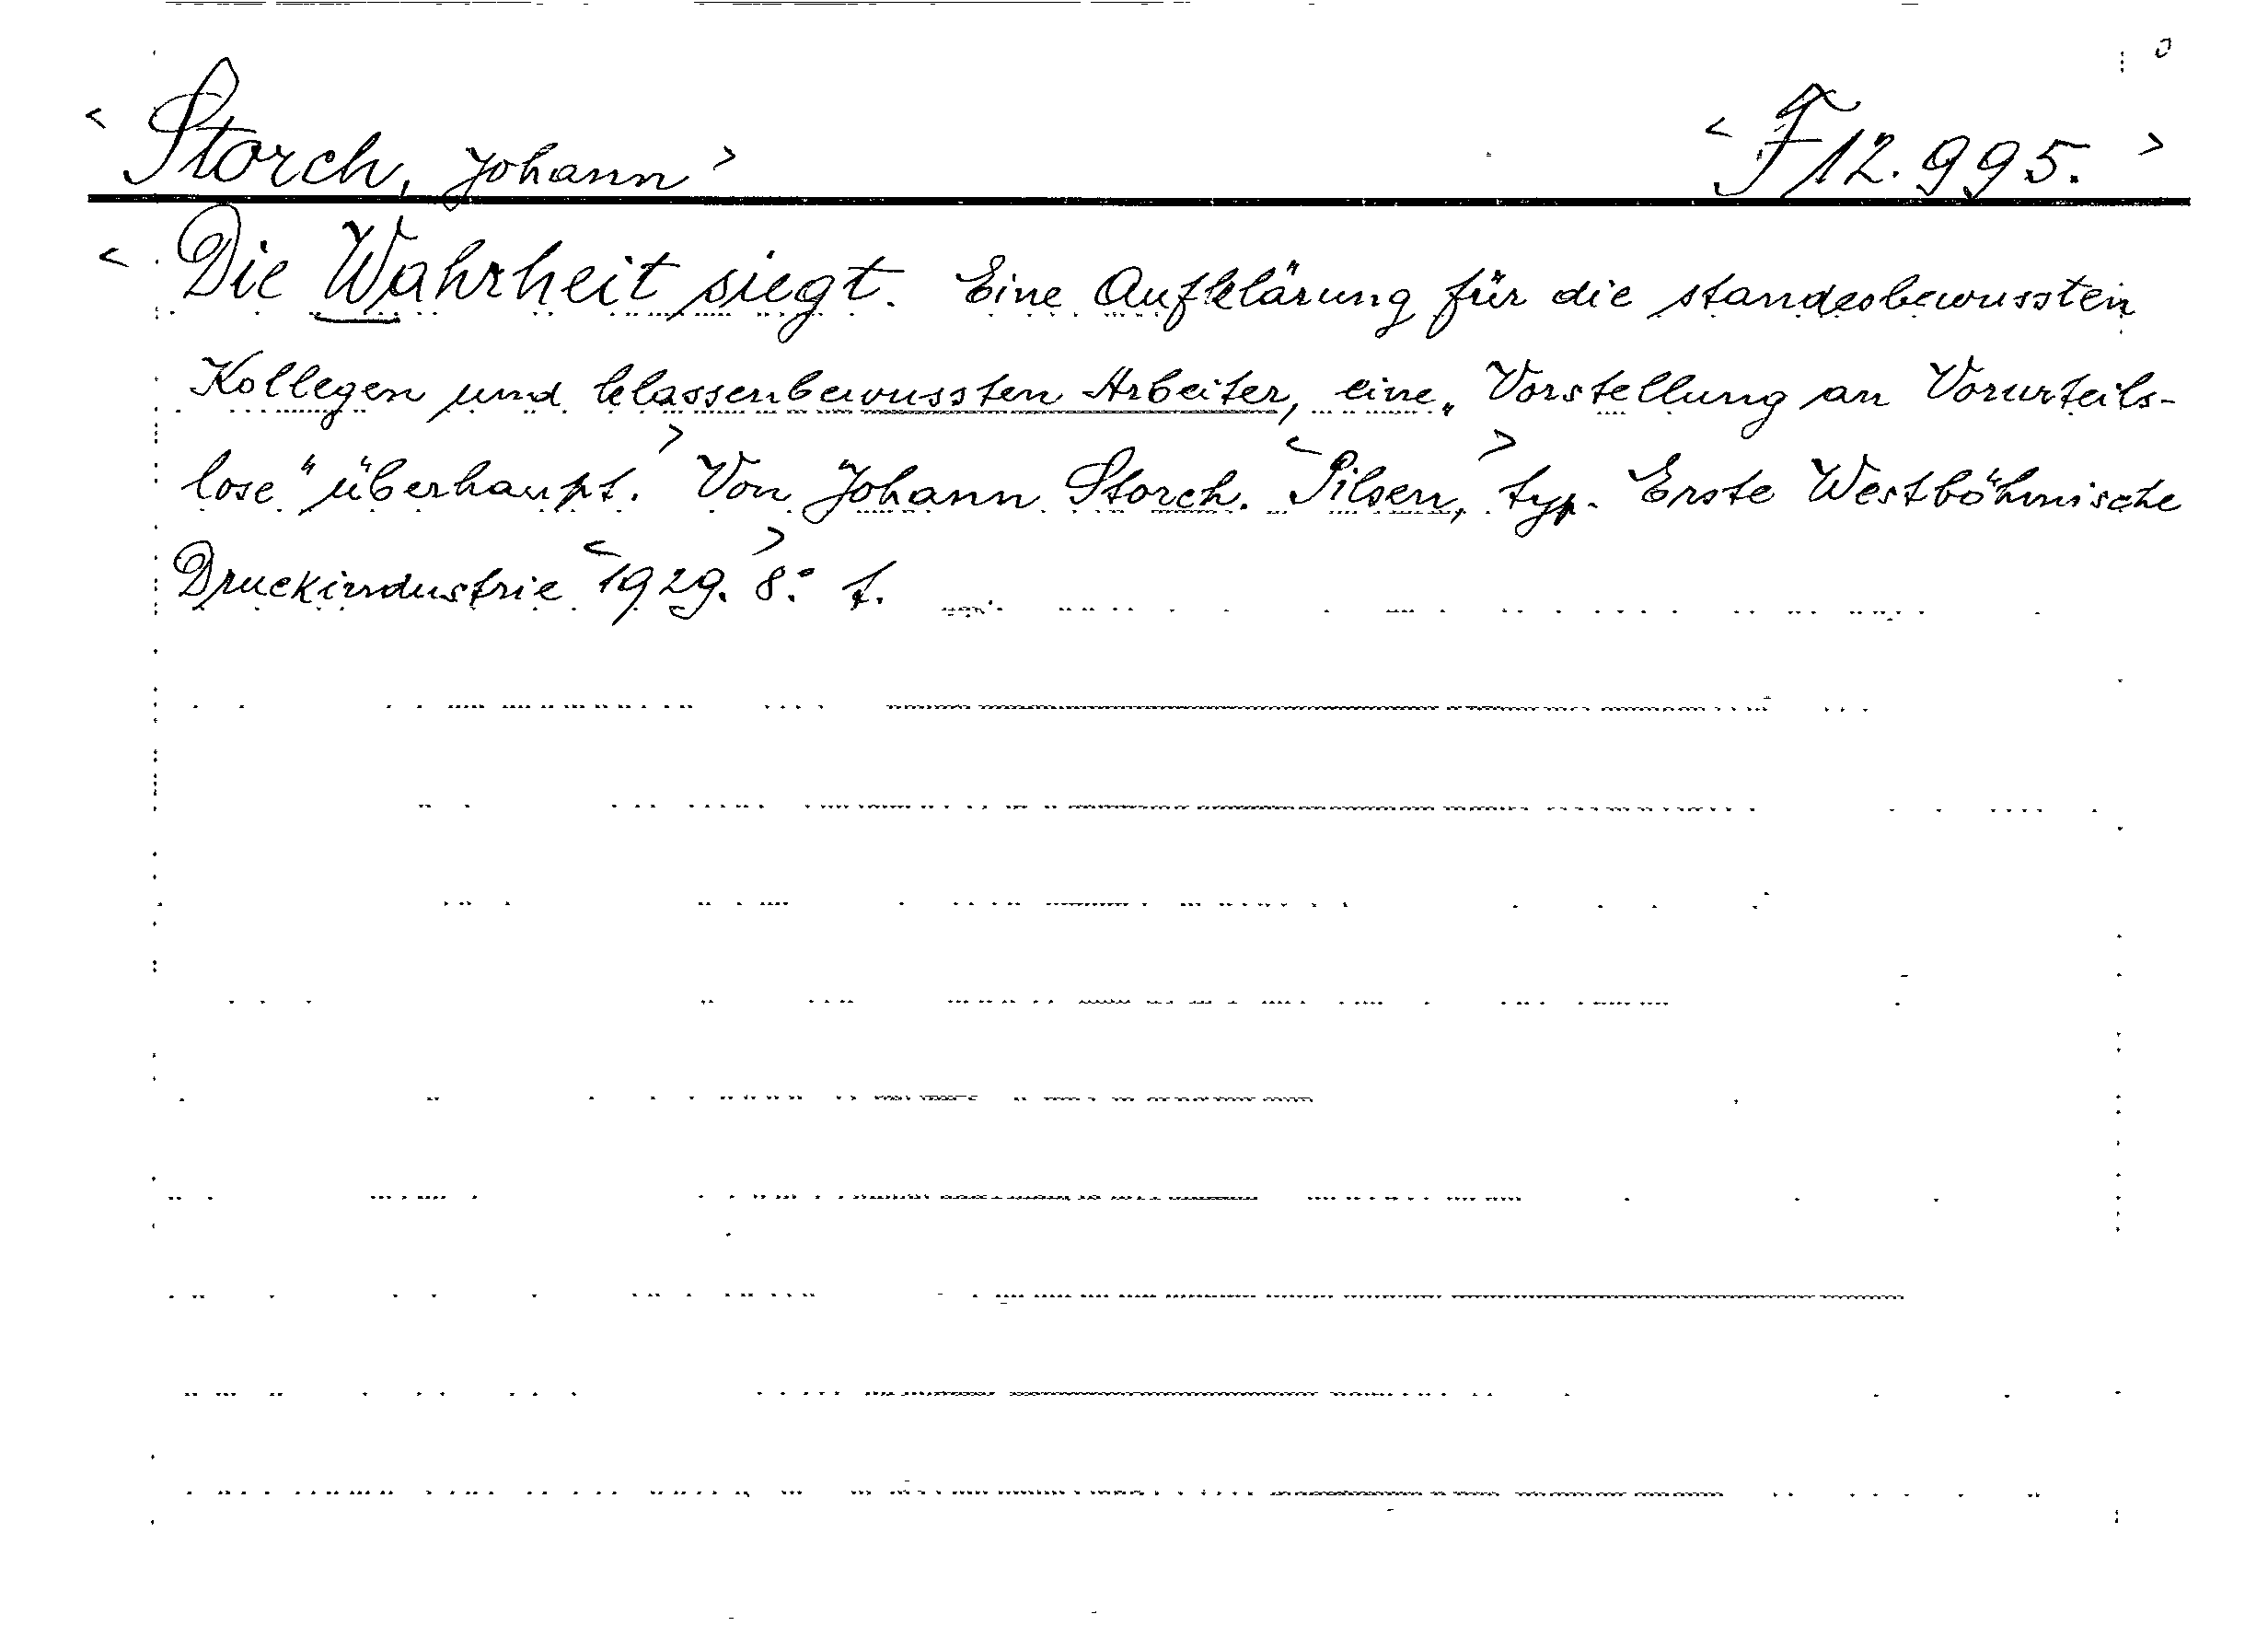 <Storch, Johann> <F 12.995.>
<Die Wahrheit siegt. Eine Aufklärung für die standesbewussten
Kollegen und klassenbewussten Arbeiter, eine „Vorstellung an Vorurteils-
lose" überhaupt.> Von Johann Storch. <Pilsen,> typ. Erste Westböhmische
Druckindustrie <1929.> 8.° f.